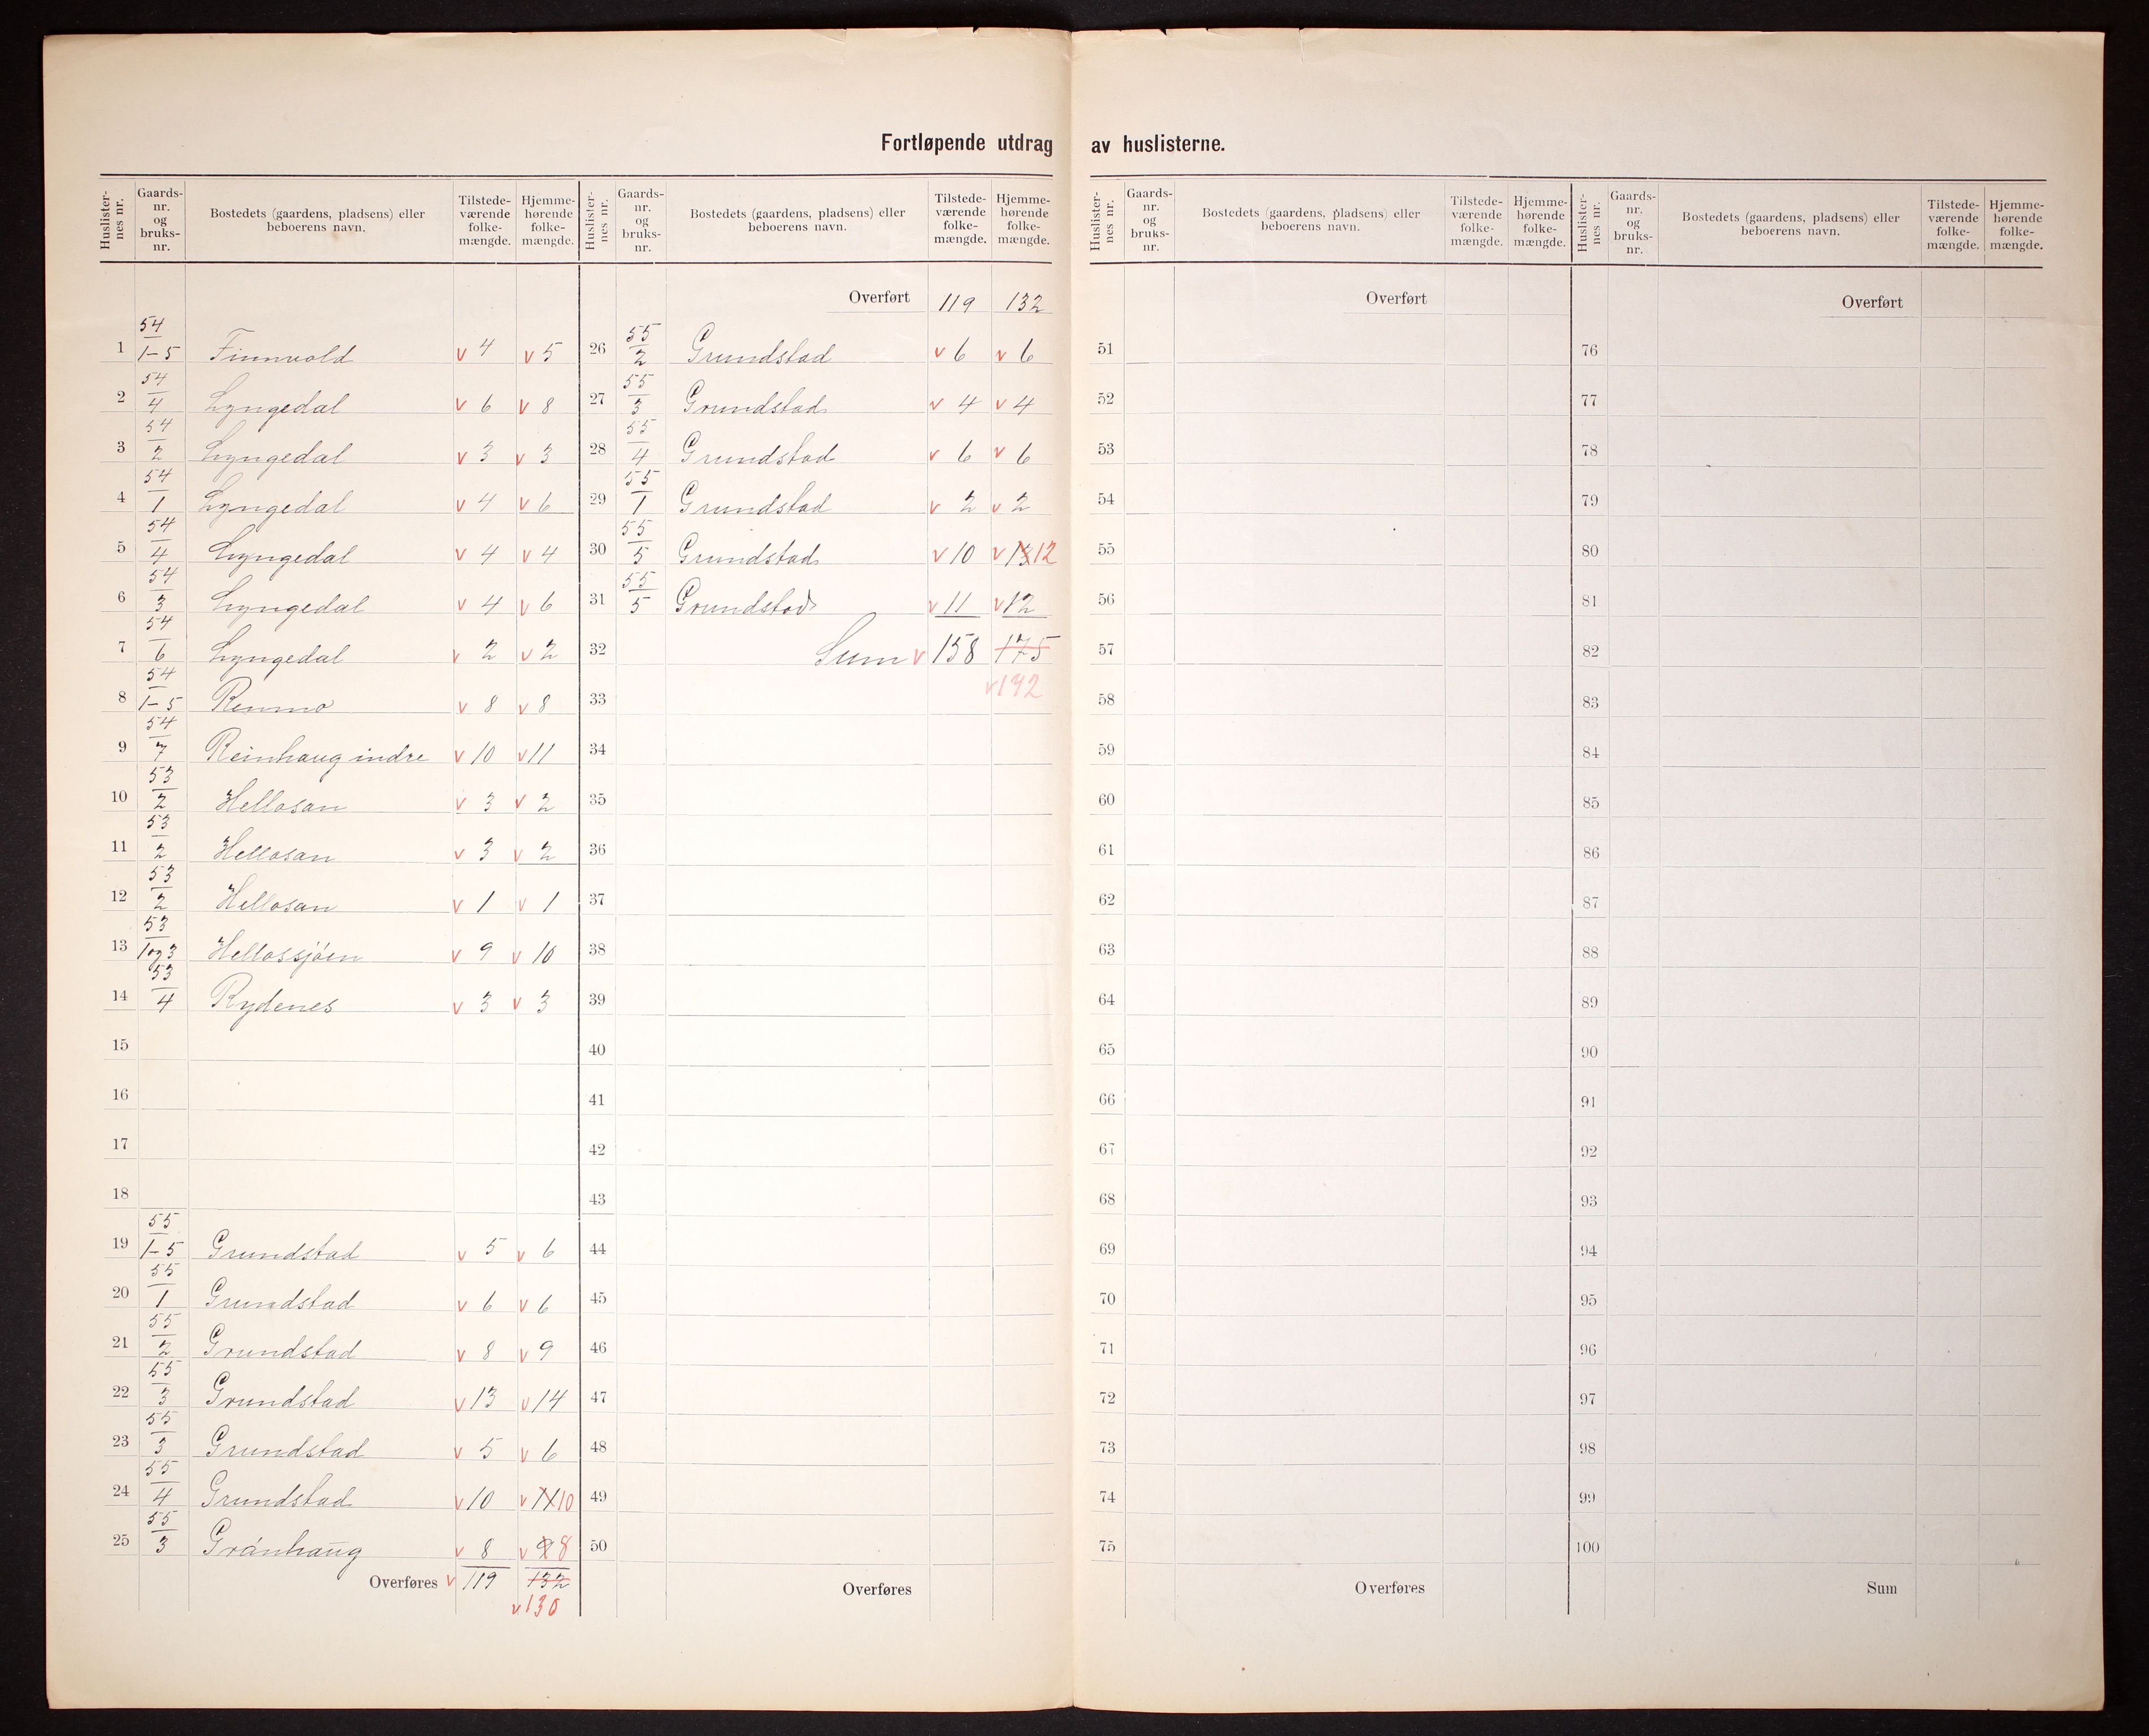 Fortløpende utdrag av huslisterne.
Huslister-nes nr. Gaards-nr. og bruks-nr. Bostedets (gaardens, pladsens) eller beboerens navn. Tilstede-værende folke-mængde. Hjemme-hørende folke-mængde.
1 54/1-5 Finnvold v 4 v 5
2 54/4 Lyngedal v 6 v 8
3 54/2 Lyngedal v 3 v 3
4 54/1 Lyngedal v 4 v 6
5 54/4 Lyngedal v 4 v 4
6 54/3 Lyngedal v 4 v 6
7 54/6 Lyngedal v 2 v 2
8 54/1-5 Renmo v 8 v 8
9 54/7 Reinhaug indre v 10 v 11
10 53/2 Hellosan v 3 v 2
11 53/2 Hellosan v 3 v 2
12 53/2 Hellosan v 1 v 1
13 53/1 og 3 Hellossjøen v 9 v 10
14 53/4 Rydenes v 3 v 3
15
16
17
18
19 55/1-5 Grundstad v 5 v 6
20 55/1 Grundstad v 6 v 6
21 55/2 Grundstad v 8 v 9
22 55/3 Grundstad v 13 v 14
23 55/3 Grundstad v 5 v 6
24 55/4 Grundstad v 10 v 11 10
25 55/3 Gránhaug v 8 v 9 8
Overføres v 119 132
v 130
Huslister-nes nr. Gaards-nr. og bruks-nr. Bostedets (gaardens, pladsens) eller beboerens navn. Tilstede-værende folke-mængde. Hjemme-hørende folke-mængde.
Overført 119 132
26 55/2 Grundstad v 6 v 6
27 55/3 Grundstad v 4 v 4
28 55/4 Grundstad v 6 v 6
29 55/1 Grundstad v 2 v 2
30 55/5 Grundstad v 10 v 13 12
31 55/5 Grundstad v 11 v 12
32 Sum v 158 175
33 v 172
34
35
36
37
38
39
40
41
42
43
44
45
46
47
48
49
50
Overføres
Huslister-nes nr. Gaards-nr. og bruks-nr. Bostedets (gaardens, pladsens) eller beboerens navn. Tilstede-værende folke-mængde. Hjemme-hørende folke-mængde.
Overført
51
52
53
54
55
56
57
58
59
60
61
62
63
64
65
66
67
68
69
70
71
72
73
74
75
Overføres
Huslister-nes nr. Gaards-nr. og bruks-nr. Bostedets (gaardens, pladsens) eller beboerens navn. Tilstede-værende folke-mængde. Hjemme-hørende folke-mængde.
Overført
76
77
78
79
80
81
82
83
84
85
86
87
88
89
90
91
92
93
94
95
96
97
98
99
100
Sum